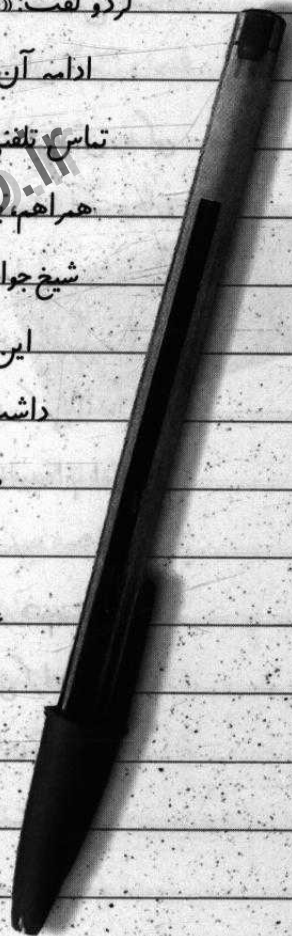 کرد و گفت: «
ادامه آن
تماس تلفنی
همراهم، 
شیخ جوا
این
داشت